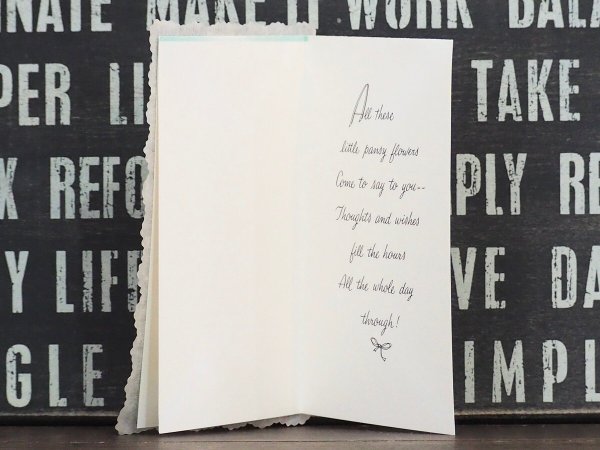 INATE MAKE IT WORK BAL
PER LI
TAKE
X REFO
PLY RE
Y LIF
VE DA
GLE
IMPL
All these
little pansy flowers
Come to say to you--
Thoughts and wishes
fill the hours
All the whole day
through!